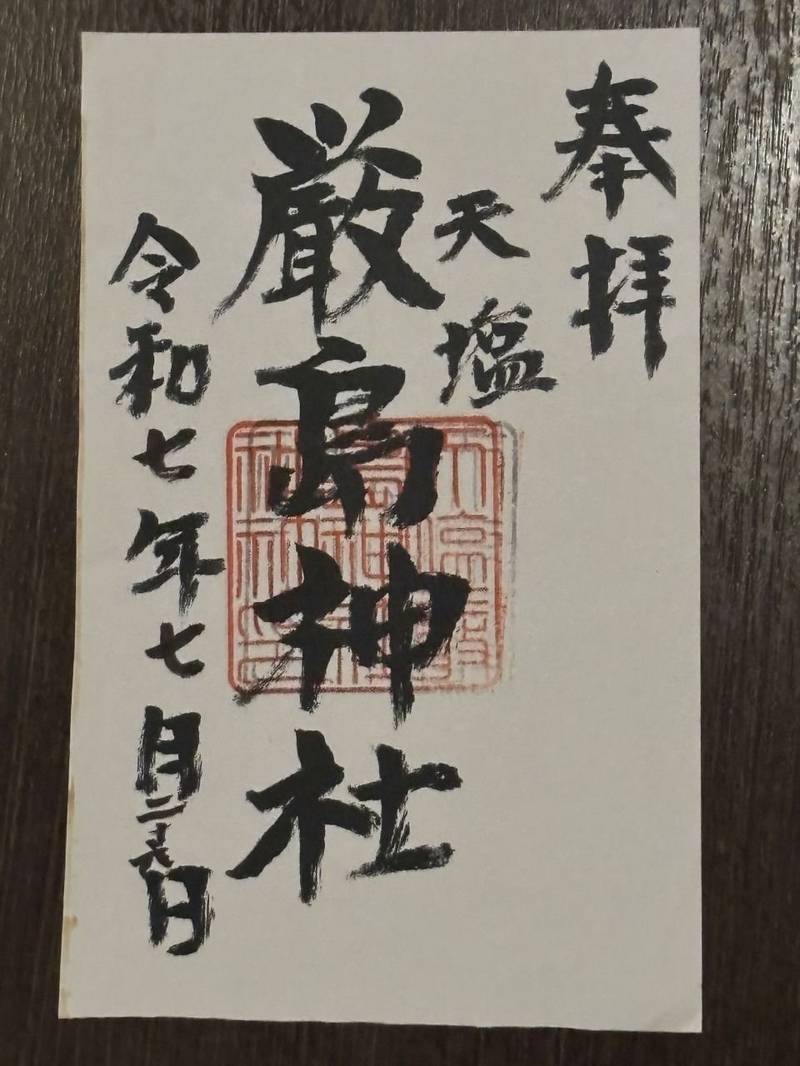 奉拝
天塩
厳島神社
令和七年七月二十六日